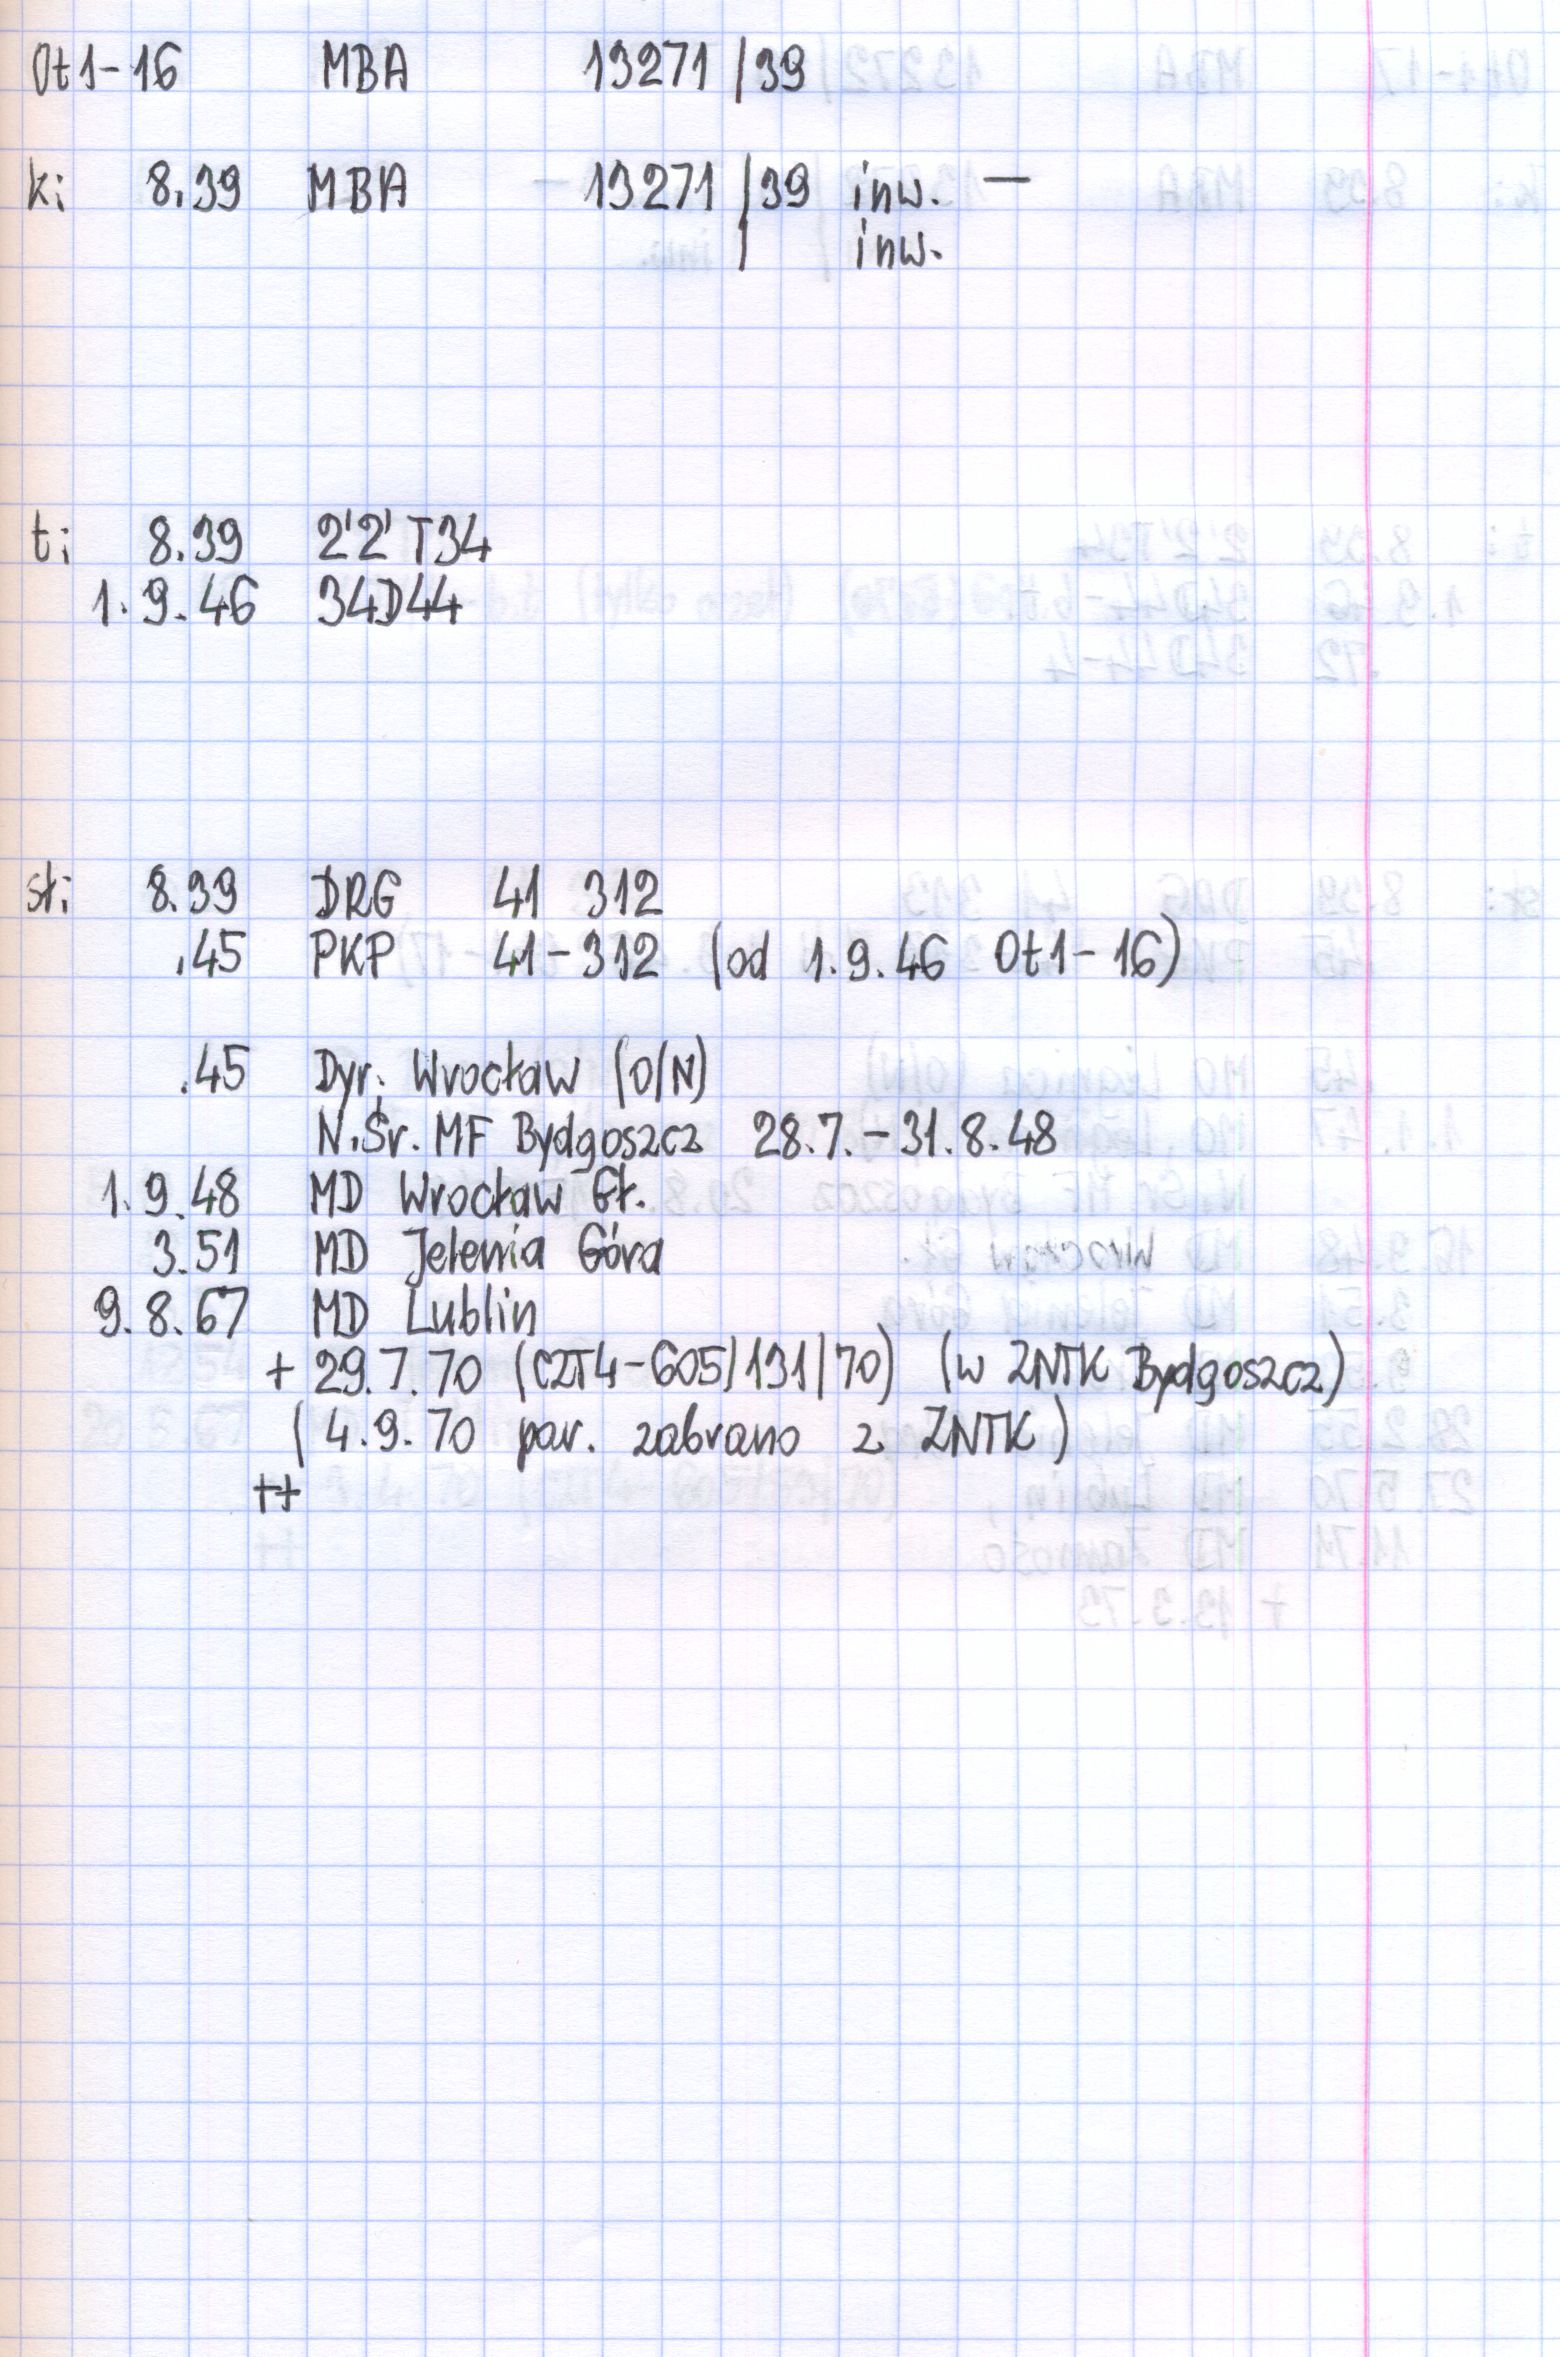 Ot1-16 MBA 13271/39
k: 8.39 MBA 13271/39 inw. —
/ inw.
t: 8.39 2'2'T34
1.9.46 34D44
st: 8.39 DRG 41 312
.45 PKP 41-312 (od 1.9.46 Ot1-16)
.45 Dyr. Wrocław (O/N)
N.Śr. MF Bydgoszcz 28.7.-31.8.48
1.9.48 MD Wrocław Gł.
3.51 MD Jelenia Góra
9.8.67 MD Lublin
+ 29.7.70 (CZT4-605/131/70) (w ZNTK Bydgoszcz)
(4.9.70 par. zabrano z ZNTK)
++